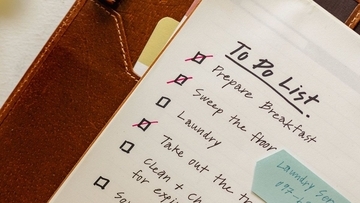 To Do List.
Prepare Breakfast
Sweep the floor
Laundry
Take out the
Clean +
for
Laundry